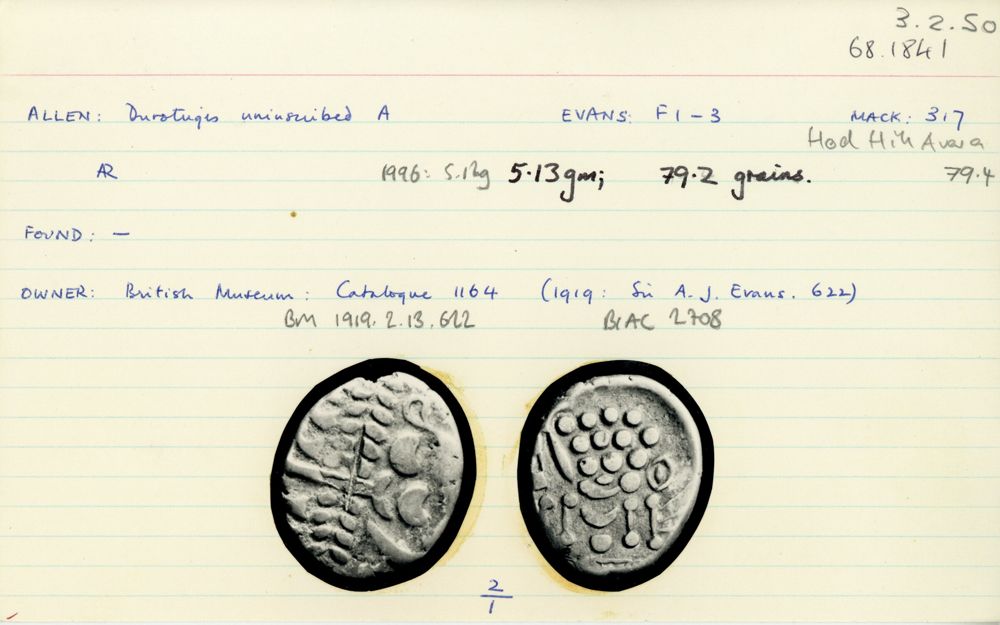 3.2.50
68.1841
ALLEN: Durotriges uninscribed A EVANS: F1-3 MACK: 317
Hod Hill
AR 1996: 5.12g 5.13gm; 79.2 grains. 79.4
FOUND: —
OWNER: British Museum: Catalogue 1164 (1919: Sir A.J. Evans. 622)
BM 1919.2.13.622 BIAC 2708
2
1